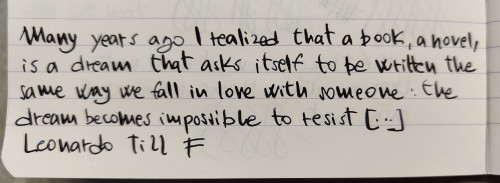 Many years ago I realized that a book, a novel,
is a dream that asks itself to be written the
same way we fall in love with someone: the
dream becomes impossible to resist [...]
Leonardo Till F